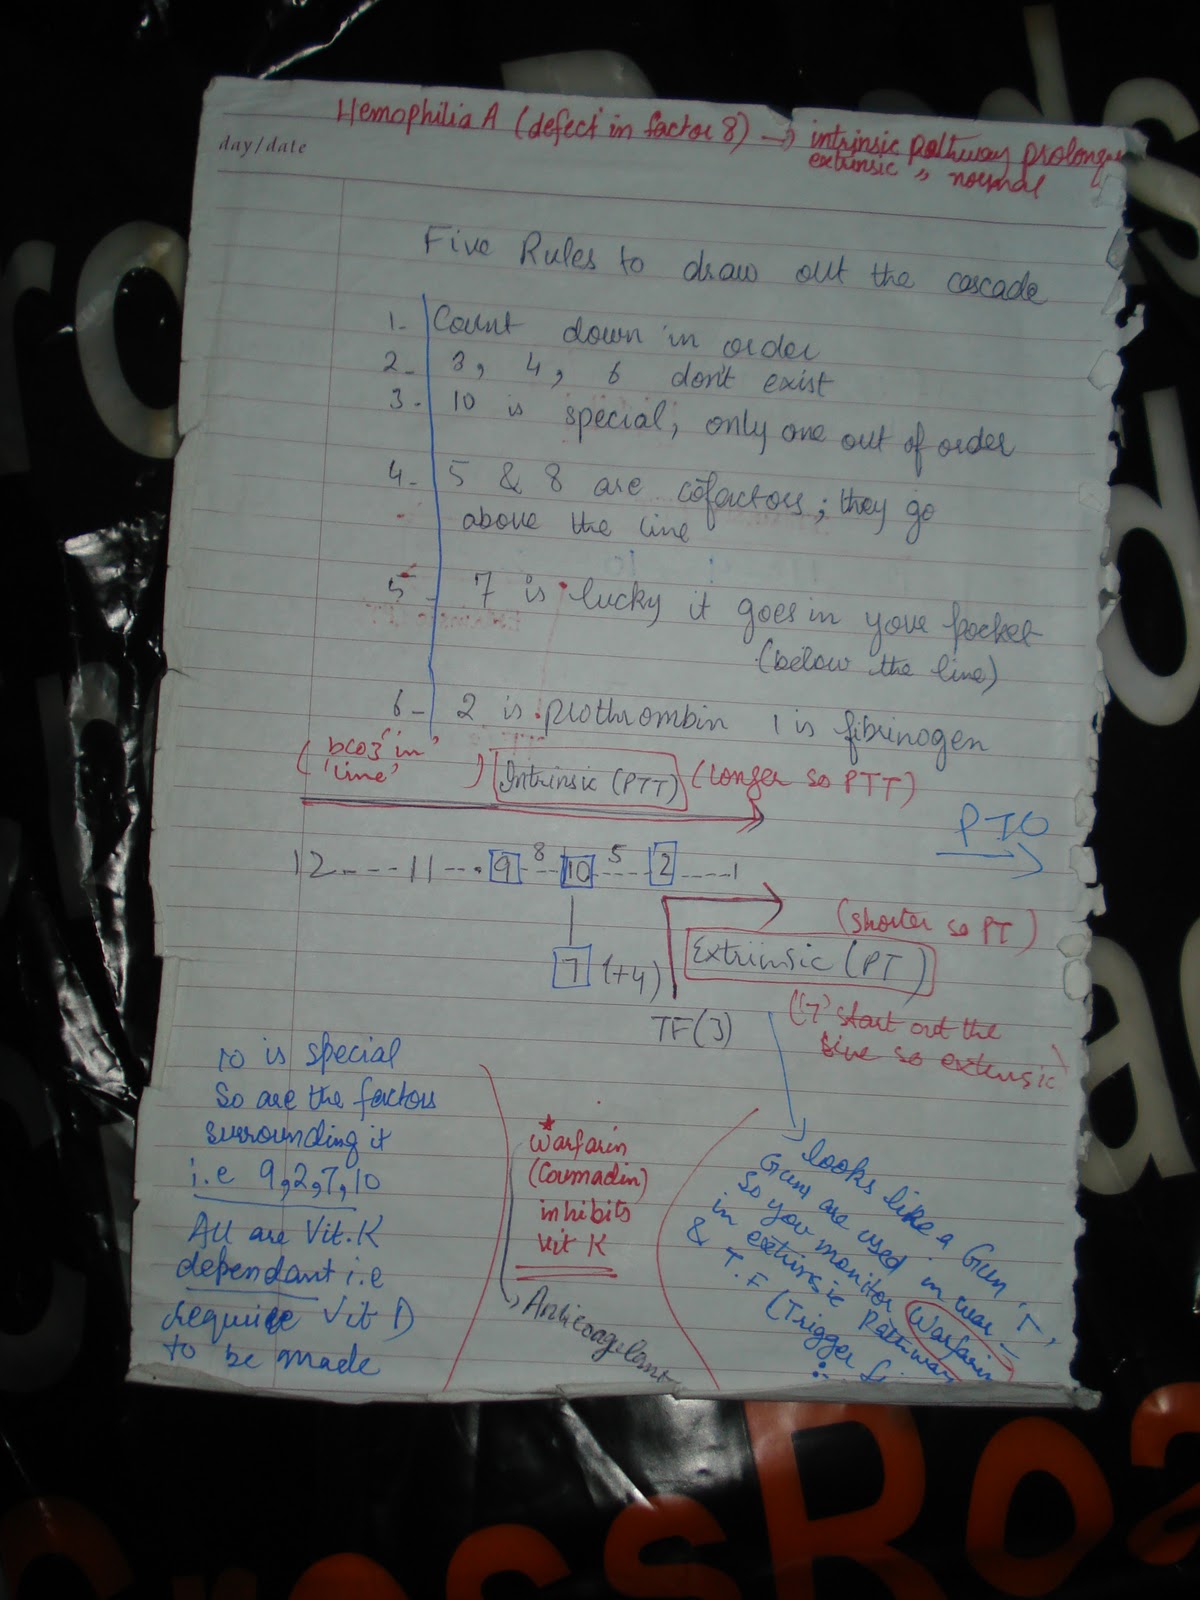 Hemophilia A (defect in factor 8) → intrinsic pathway prolongue
extrinsic " normal
day/date
Five Rules to draw out the cascade
1- Count down in order
2- 3, 4, 6 don't exist
3- 10 is special, only one out of order
4- 5 & 8 are cofactors; they go
above the line
5- 7 is lucky it goes in your pocket
(below the line)
6- 2 is prothrombin 1 is fibrinogen
(bcoz 'in'
'line') Intrinsic (PTT) (longer so PTT)
PTO
12----11---9--8--10--5--2----1
(shorter so PT)
7 (+4) Extrinsic (PT)
TF(3)
('7' start out the
line so extensic)
10 is special
So are the factors
surrounding it
i.e 9,2,7,10
All are Vit.K
dependant i.e
require Vit D
to be made
* Warfarin
(Coumadin)
inhibits
vit K
Anticoagulant
looks like a Gun
Guns are used in war
So you monitor Warfarin
in extrinsic pathway
& T.F (Trigger